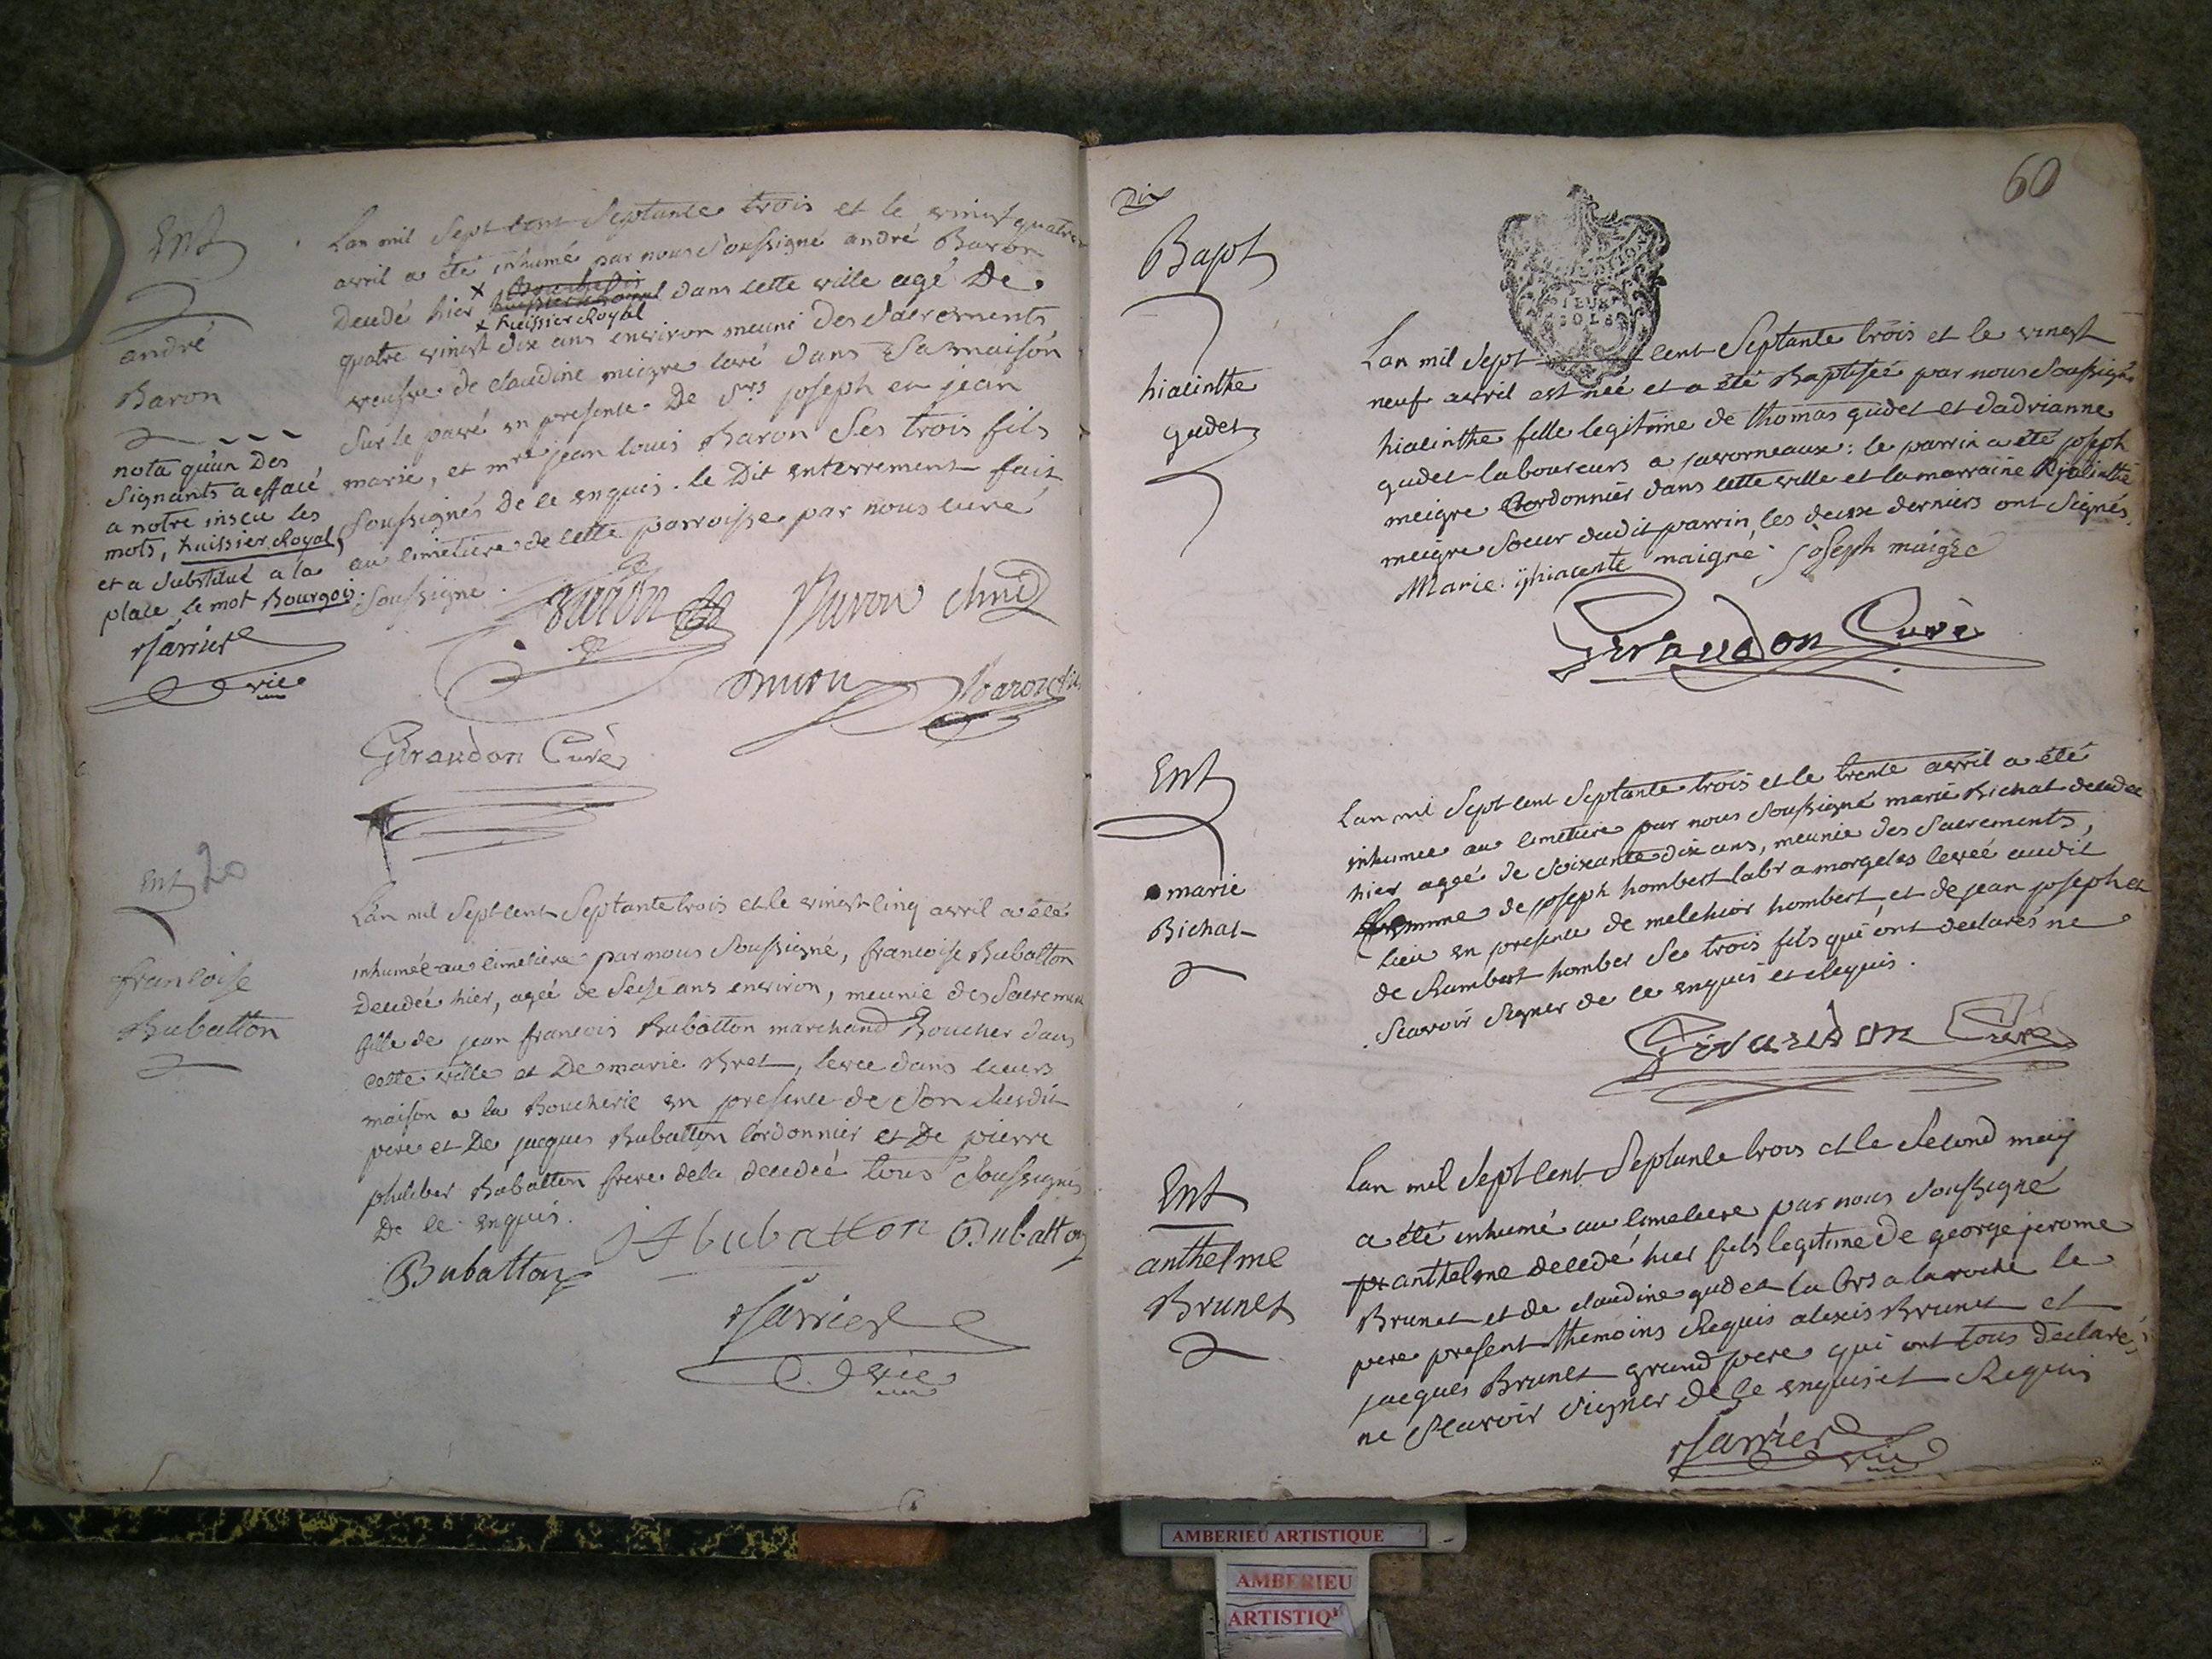 Ent
andré
Baron
nota qu'un Des
Signants a effacé
a notre insceu les
mots, huissier Royal,
et a substitué a la
place le mot Bourgois.
vic
Lan mil Sept cent Septante trois et le vinst quatre
avril a été inhumé par nous Soussigné andré Baron
Decedé hier x dans cette ville agé De
x huissier Royal
quatre vinst dix ans environ meuni Des Sacrements
veufve de claudine meigre levé dans Sa maison
Sur le pavé en presence De Srs joseph en jean
marie, et mre jean louis Baron Ses trois fils
Soussignés De ce enquis. le Dit enterrement fait
au cimetiere de cette parroisse par nous curé
Soussigné.
Baron
Baron
Giraudon Curé
Ent 20
francoise
Bubatton
Lan mil Sept cent Septante trois et le vinst cinq avril a été
inhumée au cimetiere par nous Soussigné, francoise Bubatton
Decedée hier, agée de Seise ans environ, meunie des Sacremen
fille de jean francois Bubatton marchand Boucher dans
cette ville et De marie Bret, levée dans leurs
maison a la Boucherie en presence de Son Susdit
pere et De jacques Bubatton Cordonnier et De pierre
philiber Bubatton frere de la decedée tous Soussignés
De ce enquis.
Bubatton
Bubatton
Bubatton
vic
Dix
60
Bapt
hiacinthe
gudet
DEUX
SOLS
Lan mil Sept cent Septante trois et le vinst
neuf avril est née et a été Baptisée par nous Soussigné
hiacinthe fille legitime de thomas gudet et dadrianne
gudet laboureurs a javorneaux: le parrin a été joseph
meigre Cordonnier dans cette ville et la marraine hyacinthe
meigre Soeur dudit parrin, les deux derniers ont Signés.
Marie yhiacente maigré joseph maigre
Giraudon Curé
Ent
marie
Bichat
Lan mil Sept cent Septante trois et le trente avril a été
inhumee au cimetiere par nous Soussigné marie Bichat decedee
hier agée de Soixante dix ans, meunie des Sacrements,
femme de joseph hombert labr a morgelas levée audit
lieu en presence de melchior hombert, et de jean joseph et
de Rumbert homber Ses trois fils qui ont declarés ne
Scavoir Signer de ce enquis et Requis.
Giraudon Curé
Ent
anthelme
Brunet
Lan mil Sept cent Septante trois et le Second maÿ
a été inhumé au Cimetiere par nous Soussigné
anthelme decedé hier fils legitime De george jerome
Brunet et de claudine gudet labrs a la roche le
pere present themoins Requis alexis Brunet et
jacques Brunet grand pere qui ont tous declarés
ne Scavoir Signer De Ce enquis et Requis
vic
AMBERIEU ARTISTIQUE
AMBERIEU
ARTISTIQ